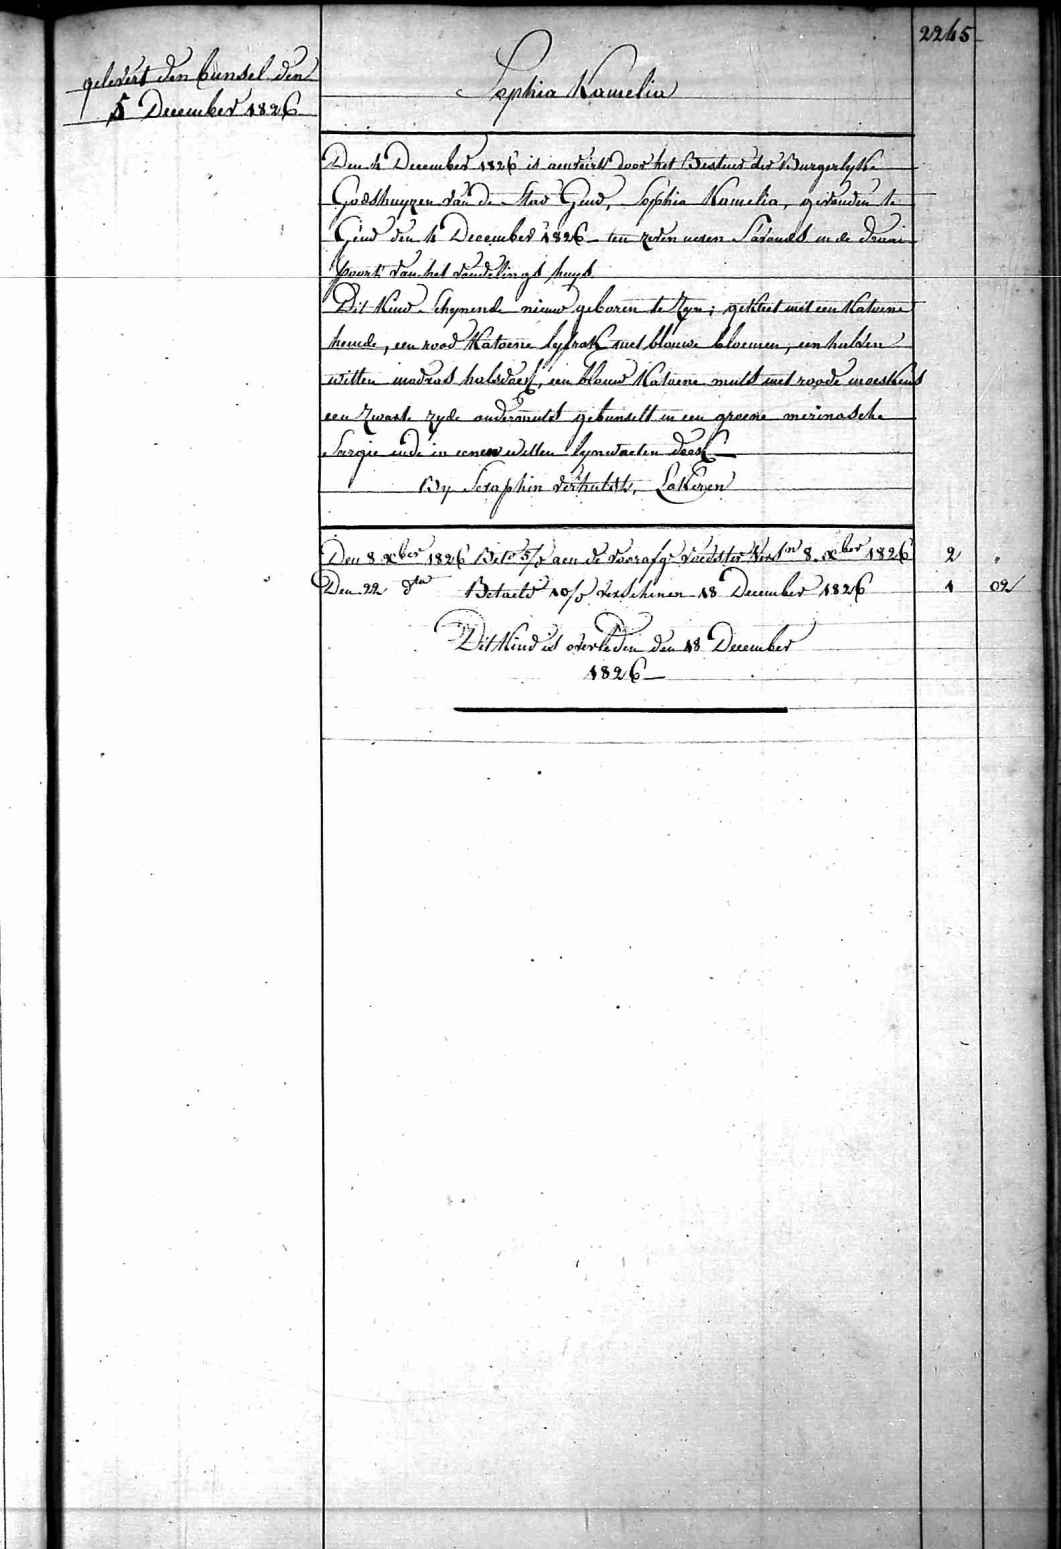 2245
gelevert den bunsel den
5 December 1826
Sophia Kamelia
Den 4 December 1826 is aenveirt door het Bestuer der Burgerlyke
Godshuyzen van de Stad Gend, Sophia Kamelia, gevonden te
Gend den 4 December 1826 ten zeven uren S'avonds in de draai
poort van het vondelings huys
Dit Kind schynende nieuw geboren te Zyn; gekleet met een Katoene
hemde, een rood Katoene lyfrok met blauwe bloemen, een halven
witten madras halsdoek, een blauw Katoene muts met roode moeskens
een zwarte zyde ondermuts gebunselt in een groene merinosche
Sargie ende in eenen witten lynwaeten doek
By Seraphin Verhulst, Lokeren
Den 8 Xber 1826 Bet. 5/o aen de voorafge voedster 8 Xber 1826 2 "
Den 22 dto Betaeld 10/o verschenen 18 December 1826 1 02
Dit Kind is overleden den 18 December
1826